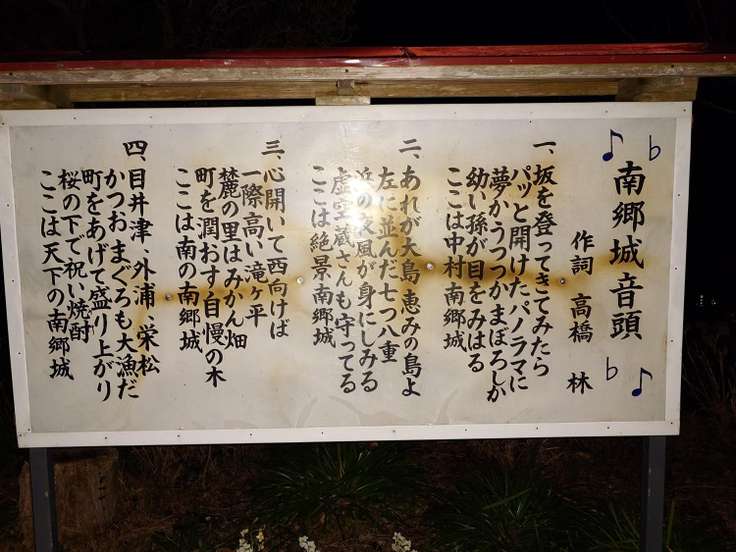 南郷城音頭
作詞 高橋 林
一、坂を登ってきてみたら
パッと開けたパノラマに
夢かうつつかまぼろしか
幼い孫が目をみはる
ここは中村南郷城
二、あれが大島 恵みの島よ
左に並んだ七つ八重
浜の 風が身にしみる
虚空蔵さんも守ってる
ここは絶景南郷城
三、心開いて西向けば
一際高い滝ヶ平
麓の里はみかん畑
町を潤おす自慢の木
ここは南の南郷城
四、目井津、外浦、栄松
かつお まぐろも大漁だ
町をあげて盛り上がり
桜の下で祝い焼酎
ここは天下の南郷城